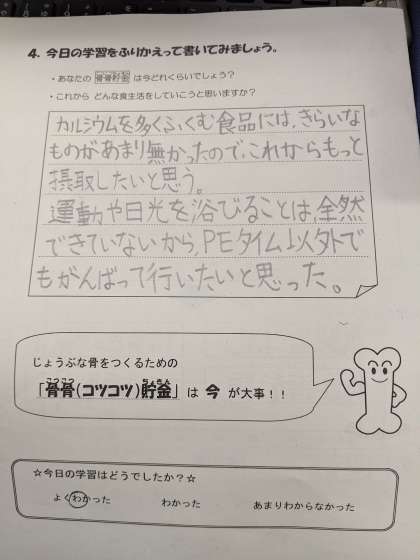 4. 今日の学習をふりかえって書いてみましょう。
・あなたの 骨骨貯金 は今どれくらいでしょう？
・これから どんな食生活をしていこうと思いますか？
カルシウムを多くふくむ食品には、きらいな
ものがあまり無かったので、これからもっと
摂取したいと思う。
運動や日光を浴びることは、全然
できていないから、PEタイム以外で
もがんばって行いたいと思った。
じょうぶな骨をつくるための
「骨骨(コツコツ)貯金」は 今 が大事！！
☆今日の学習はどうでしたか？☆
よくわかった わかった あまりわからなかった